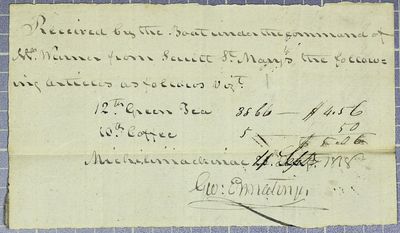 Received by the Boat under the command of
Mr. Warner from Sault St. Mary's the follow=
ing articles as follows Vizt.
12 lb Green Tea 3866 — $ 4.56
10 lb Coffee 5 50
$
Michilimackinac Sept. 1818
Geo: